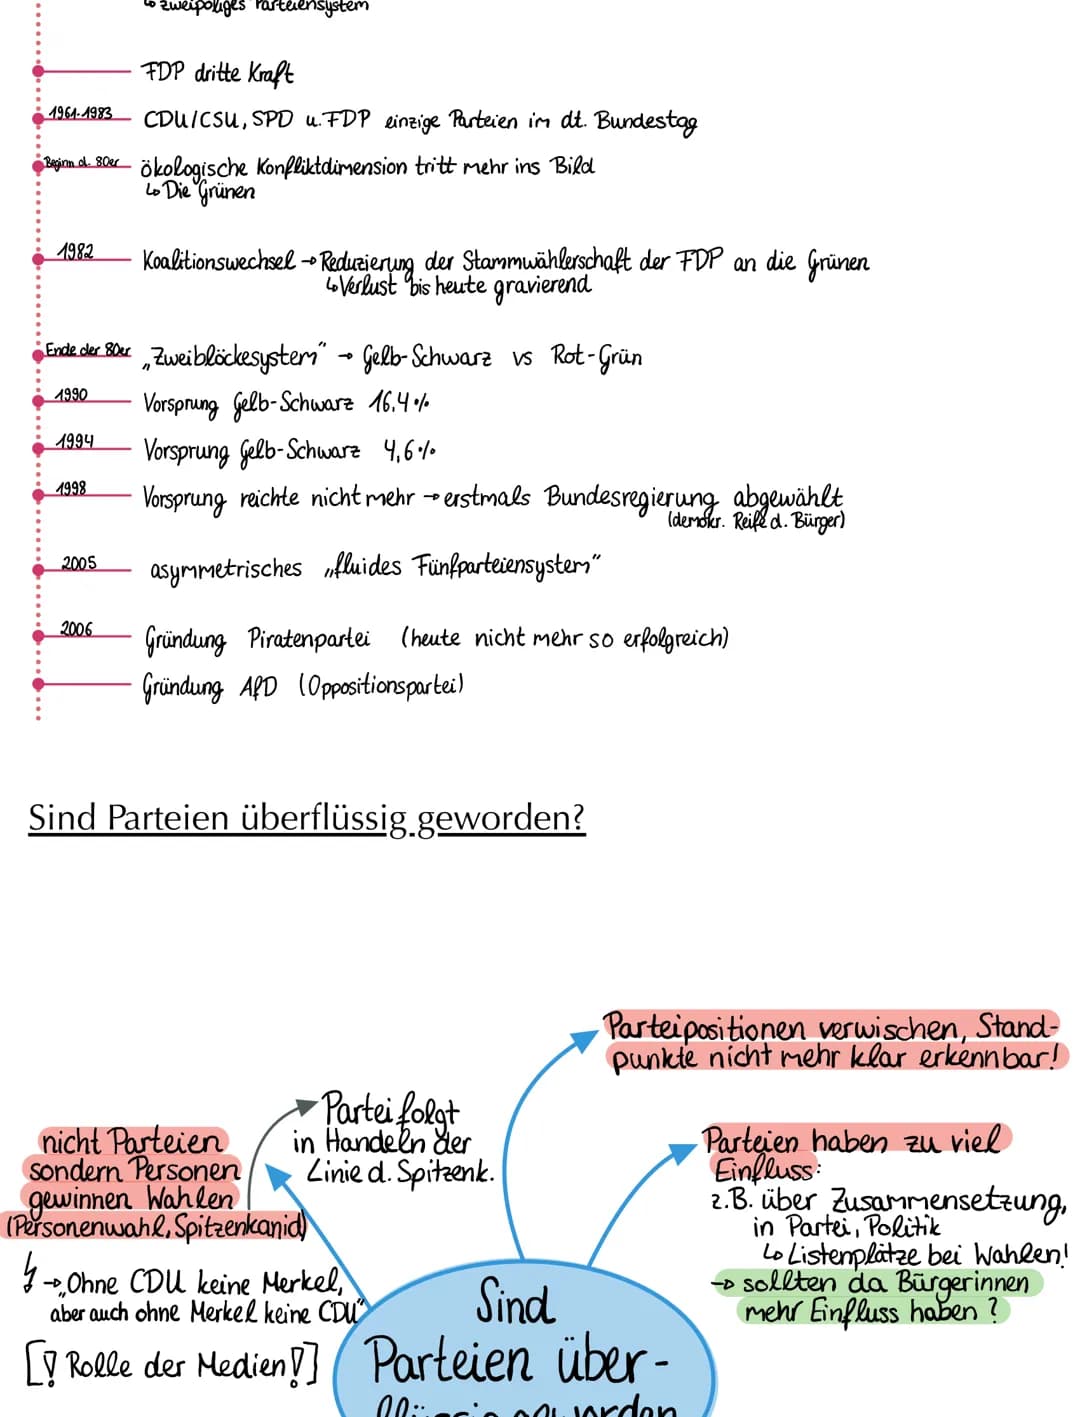 ↳ zweipoliges Parteiensystem
FDP dritte Kraft
1961-1983 CDU/CSU, SPD u. FDP einzige Parteien im dt. Bundestag
Beginn d. 80er ökologische Konfliktdimension tritt mehr ins Bild
↳ Die Grünen
1982 Koalitionswechsel → Reduzierung der Stammwählerschaft der FDP an die Grünen
↳ Verlust bis heute gravierend
Ende der 80er „Zweiblöckesystem“ → Gelb-Schwarz vs Rot-Grün
1990 Vorsprung Gelb-Schwarz 16,4%
1994 Vorsprung Gelb-Schwarz 4,6%
1998 Vorsprung reichte nicht mehr → erstmals Bundesregierung abgewählt
(demokr. Reife d. Bürger)
2005 asymmetrisches „fluides Fünfparteiensystem“
2006 Gründung Piratenpartei (heute nicht mehr so erfolgreich)
Gründung AfD (Oppositionspartei)
Sind Parteien überflüssig geworden?
Parteipositionen verwischen, Stand-
punkte nicht mehr klar erkennbar!
Partei folgt
in Handeln der
Linie d. Spitzenk.
nicht Parteien
sondern Personen
gewinnen Wahlen
(Personenwahl, Spitzenkanid)
→ „Ohne CDU keine Merkel,
aber auch ohne Merkel keine CDU“
[! Rolle der Medien!]
Parteien haben zu viel
Einfluss:
z.B. über Zusammensetzung,
in Partei, Politik
↳ Listenplätze bei Wahlen!
→ sollten da Bürgerinnen
mehr Einfluss haben?
Sind
Parteien über-
flüssig geworden